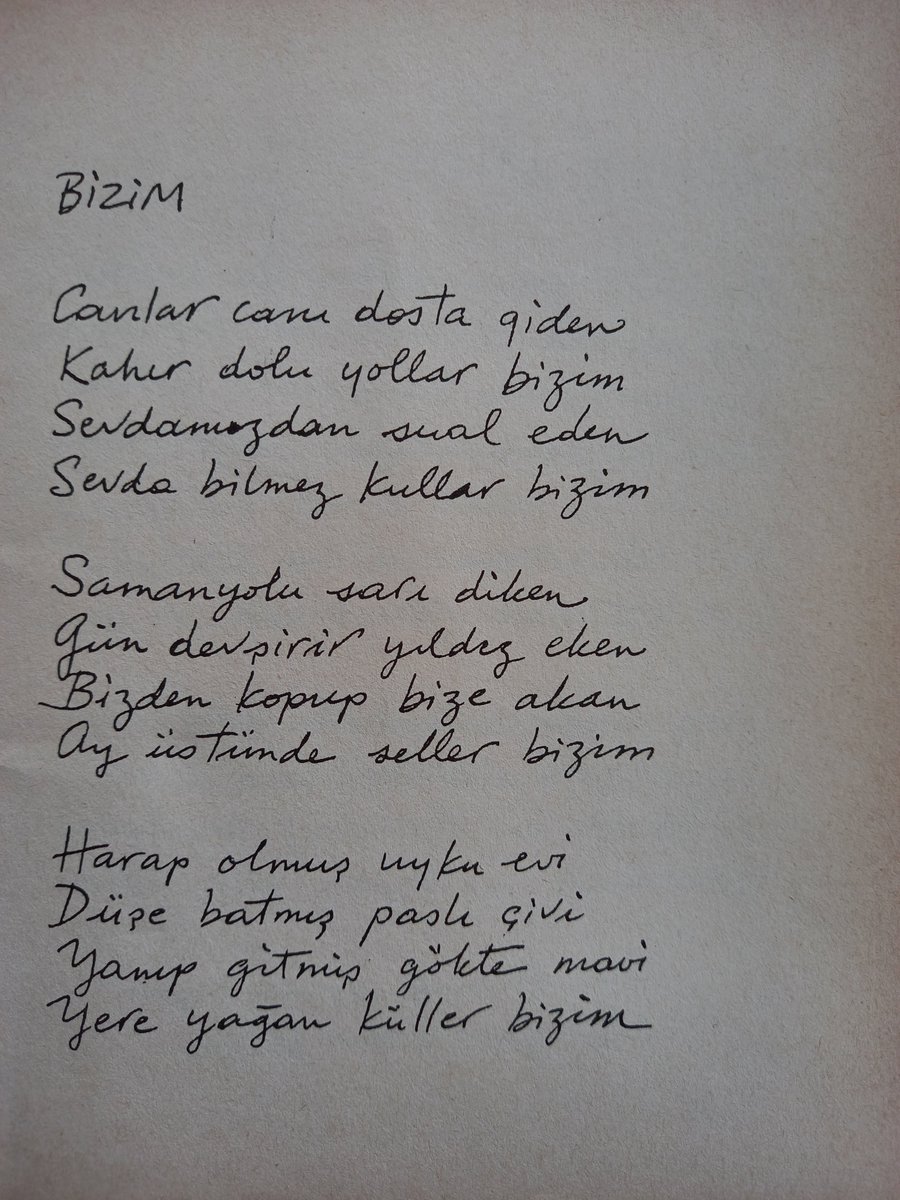 BİZİM
Canlar canı dosta giden
Kahır dolu yollar bizim
Sevdamızdan sual eden
Sevda bilmez kullar bizim
Samanyolu sarı diken
Gün devşirir yıldız eken
Bizden kopup bize akan
Ay üstünde seller bizim
Harap olmuş uyku evi
Düşe batmış paslı çivi
Yanıp gitmiş gökte mavi
Yere yağan küller bizim